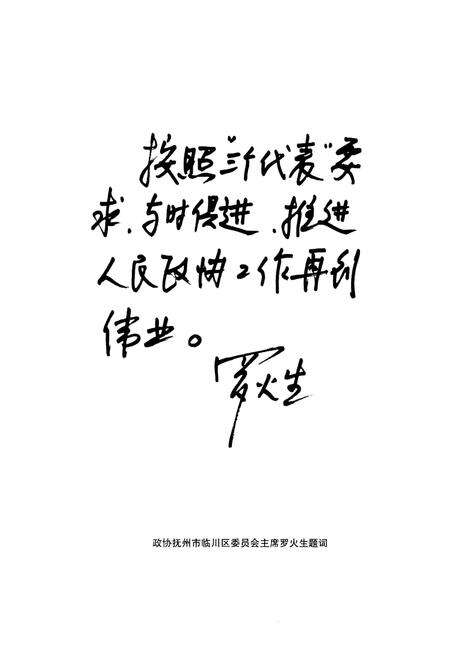 按照“三个代表”要
求、与时俱进、推进
人民政协工作再创
伟业。
罗火生
政协抚州市临川区委员会主席罗火生题词